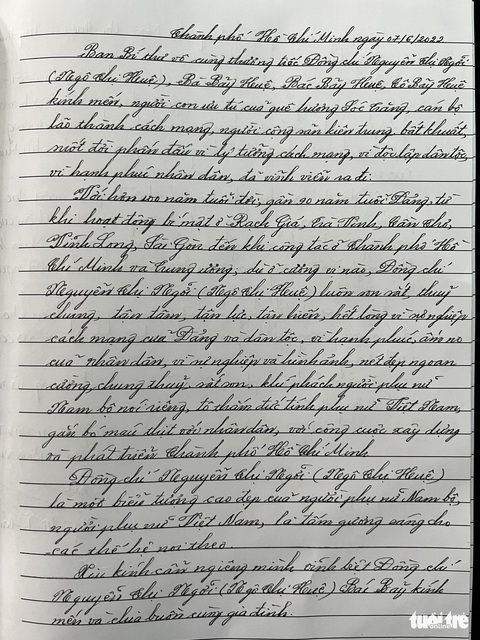 Thành phố Hồ Chí Minh ngày 07/6/2022
Ban Bí thư vô cùng thương tiếc Đồng chí Nguyễn Thị Ngỡi
(Ngô Thị Huệ), Bà Bảy Huệ, Bác Bảy Huệ, Cô Bảy Huệ
kính mến, người con ưu tú của quê hương Sóc Trăng, cán bộ
lão thành cách mạng, người cộng sản kiên trung, bất khuất,
suốt đời phấn đấu vì lý tưởng cách mạng, vì độc lập dân tộc,
vì hạnh phúc nhân dân, đã vĩnh viễn ra đi.
Với hơn 100 năm tuổi đời, gần 90 năm tuổi Đảng, từ
khi hoạt động bí mật ở Rạch Giá, Trà Vinh, Cần Thơ,
Vĩnh Long, Sài Gòn đến khi công tác ở Thành phố Hồ
Chí Minh và Trung ương, dù ở cương vị nào, Đồng chí
Nguyễn Thị Ngỡi (Ngô Thị Huệ) luôn son sắt, thuỷ
chung, tận tâm, tận lực, tận hiến, hết lòng vì sự nghiệp
cách mạng của Đảng và dân tộc, vì hạnh phúc, ấm no
của nhân dân, vì sự nghiệp và hình ảnh, nét đẹp ngoan
cường, chung thuỷ, sắt son, khí phách người phụ nữ
Nam bộ nói riêng, tô thắm đức tính phụ nữ Việt Nam,
gắn bó máu thịt với nhân dân, với công cuộc xây dựng
và phát triển Thành phố Hồ Chí Minh.
Đồng chí Nguyễn Thị Ngỡi (Ngô Thị Huệ)
là một biểu tượng cao đẹp của người phụ nữ Nam bộ,
người phụ nữ Việt Nam, là tấm gương sáng cho
các thế hệ noi theo.
Xin kính cẩn nghiêng mình, vĩnh biệt Đồng chí
Nguyễn Thị Ngỡi (Ngô Thị Huệ) Bác Bảy kính
mến và chia buồn cùng gia đình.
tuổi trẻ
online